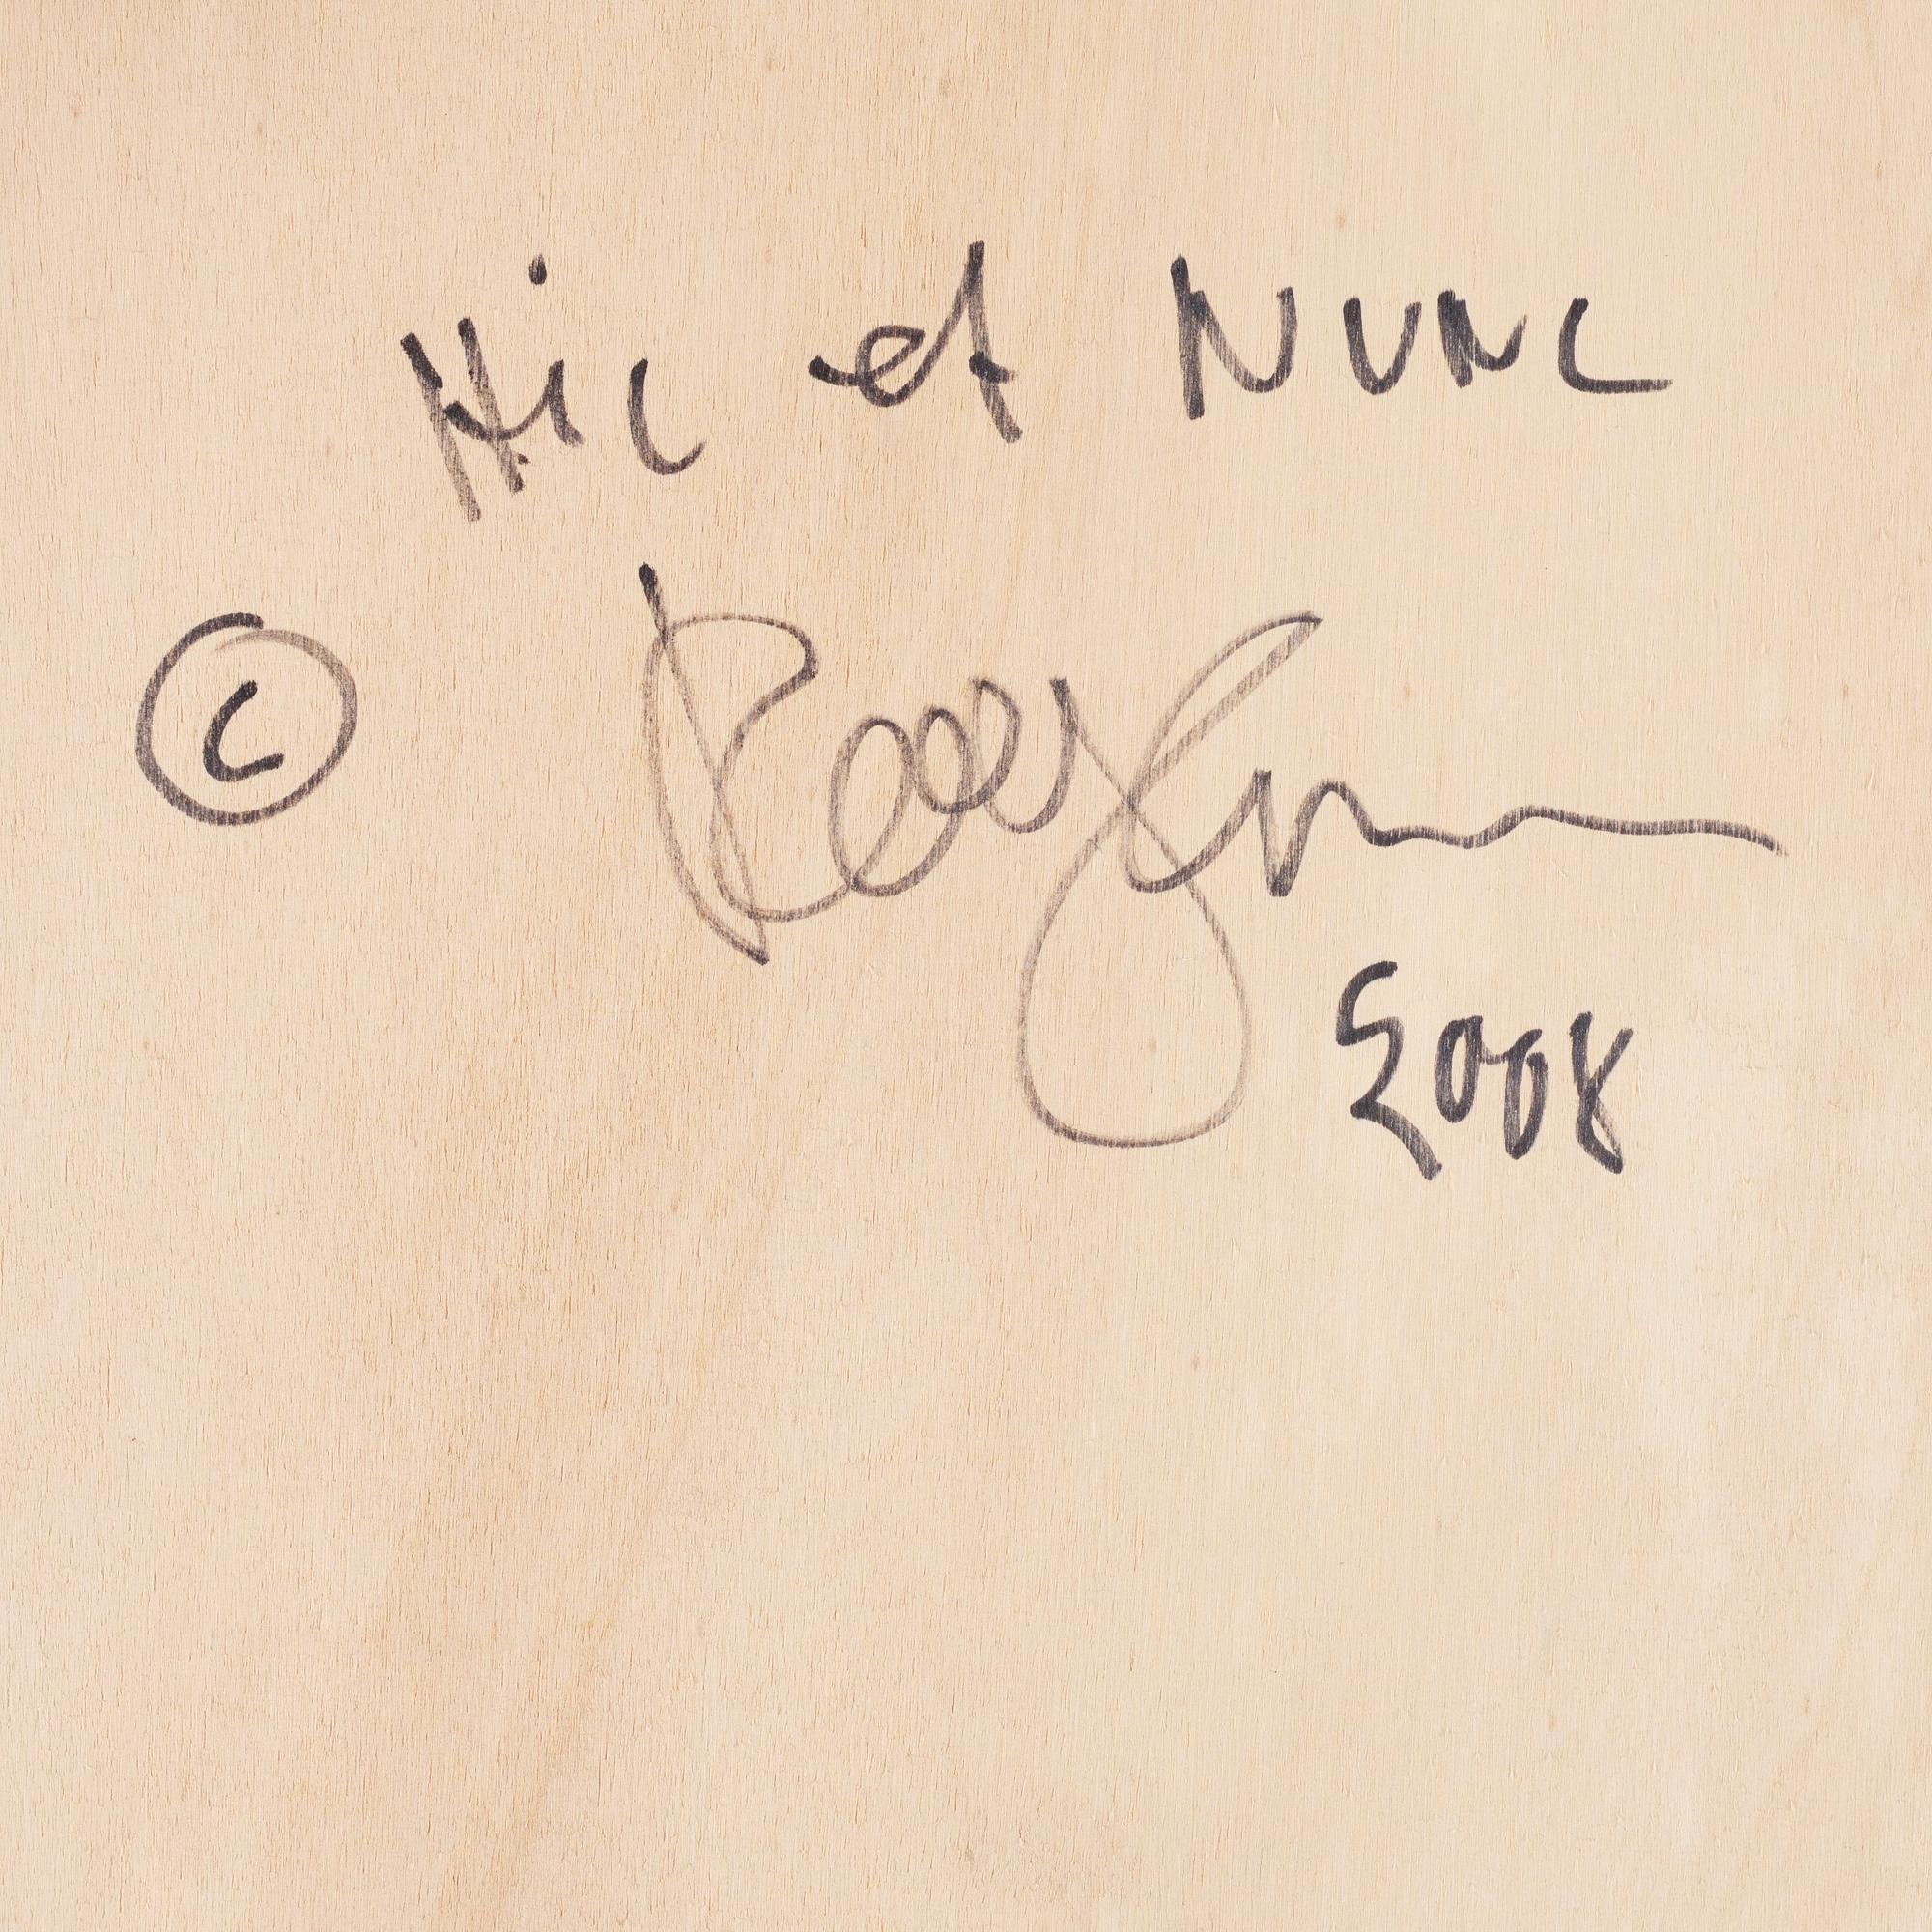 Hic et Nunc
©
2008